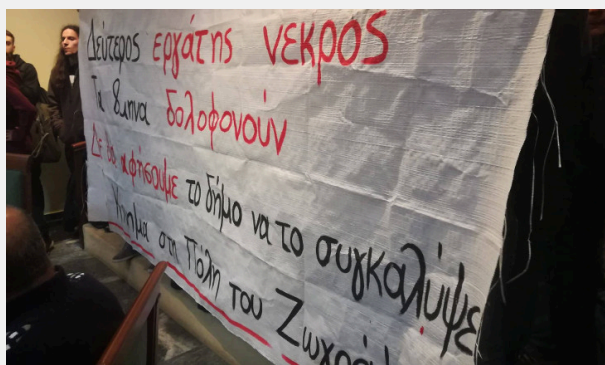 Δεύτερος εργάτης νεκρος
Τα 8μηνα δολοφονούν
Δε θα αφήσουμε το δήμο να το συγκαλύψε
στη Πόλη του